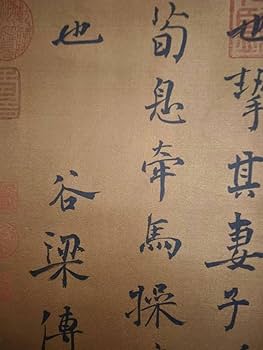 也挈其妻子
荀息牽馬操
也 谷梁傳